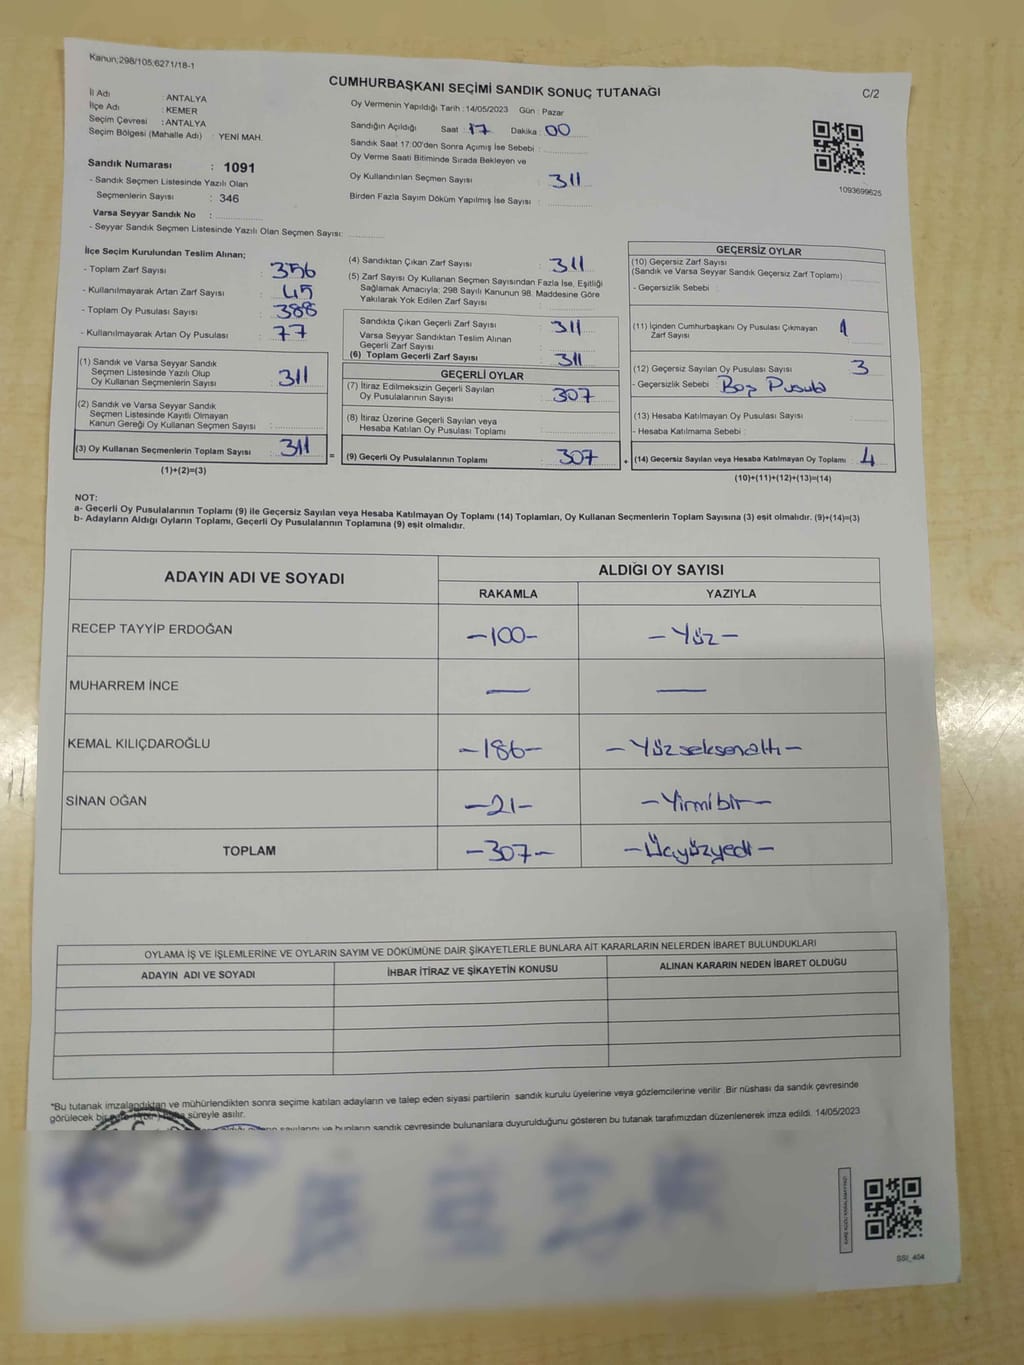 Kanun;298/105;6271/18-1
CUMHURBAŞKANI SEÇİMİ SANDIK SONUÇ TUTANAĞI
C/2
İl Adı : ANTALYA
İlçe Adı : KEMER
Seçim Çevresi : ANTALYA
Seçim Bölgesi (Mahalle Adı) : YENİ MAH.
Sandık Numarası : 1091
- Sandık Seçmen Listesinde Yazılı Olan
Seçmenlerin Sayısı : 346
Varsa Seyyar Sandık No :
- Seyyar Sandık Seçmen Listesinde Yazılı Olan Seçmen Sayısı:
Oy Vermenin Yapıldığı Tarih : 14/05/2023 Gün : Pazar
Sandığın Açıldığı Saat : 17 Dakika : 00
Sandık Saat 17:00'den Sonra Açımış İse Sebebi :
Oy Verme Saati Bitiminde Sırada Bekleyen ve
Oy Kullandırılan Seçmen Sayısı : 311
Birden Fazla Sayım Döküm Yapılmış İse Sayısı :
1093699625
İlçe Seçim Kurulundan Teslim Alınan;
- Toplam Zarf Sayısı : 356
- Kullanılmayarak Artan Zarf Sayısı : 45
- Toplam Oy Pusulası Sayısı : 388
- Kullanılmayarak Artan Oy Pusulası : 77
(1) Sandık ve Varsa Seyyar Sandık
Seçmen Listesinde Yazılı Olup
Oy Kullanan Seçmenlerin Sayısı : 311
(2) Sandık ve Varsa Seyyar Sandık
Seçmen Listesinde Kayıtlı Olmayan
Kanun Gereği Oy Kullanan Seçmen Sayısı :
(3) Oy Kullanan Seçmenlerin Toplam Sayısı : 311
(1)+(2)=(3)
=
(4) Sandıktan Çıkan Zarf Sayısı : 311
(5) Zarf Sayısı Oy Kullanan Seçmen Sayısından Fazla İse, Eşitliği
Sağlamak Amacıyla; 298 Sayılı Kanunun 98. Maddesine Göre
Yakılarak Yok Edilen Zarf Sayısı :
Sandıkta Çıkan Geçerli Zarf Sayısı : 311
Varsa Seyyar Sandıktan Teslim Alınan
Geçerli Zarf Sayısı :
(6) Toplam Geçerli Zarf Sayısı : 311
GEÇERLİ OYLAR
(7) İtiraz Edilmeksizin Geçerli Sayılan
Oy Pusulalarının Sayısı : 307
(8) İtiraz Üzerine Geçerli Sayılan veya
Hesaba Katılan Oy Pusulası Toplamı :
(9) Geçerli Oy Pusulalarının Toplamı : 307
+
GEÇERSİZ OYLAR
(10) Geçersiz Zarf Sayısı
(Sandık ve Varsa Seyyar Sandık Geçersiz Zarf Toplamı) :
- Geçersizlik Sebebi :
(11) İçinden Cumhurbaşkanı Oy Pusulası Çıkmayan
Zarf Sayısı : 1
(12) Geçersiz Sayılan Oy Pusulası Sayısı : 3
- Geçersizlik Sebebi : Boş Pusula
(13) Hesaba Katılmayan Oy Pusulası Sayısı :
- Hesaba Katılmama Sebebi :
(14) Geçersiz Sayılan veya Hesaba Katılmayan Oy Toplamı : 4
(10)+(11)+(12)+(13)=(14)
NOT:
a- Geçerli Oy Pusulalarının Toplamı (9) ile Geçersiz Sayılan veya Hesaba Katılmayan Oy Toplamı (14) Toplamları, Oy Kullanan Seçmenlerin Toplam Sayısına (3) eşit olmalıdır. (9)+(14)=(3)
b- Adayların Aldığı Oyların Toplamı, Geçerli Oy Pusulalarının Toplamına (9) eşit olmalıdır.
ADAYIN ADI VE SOYADI
ALDIĞI OY SAYISI
RAKAMLA YAZIYLA
RECEP TAYYİP ERDOĞAN -100- -Yüz-
MUHARREM İNCE — —
KEMAL KILIÇDAROĞLU -186- -Yüzseksenaltı-
SİNAN OĞAN -21- -Yirmibir-
TOPLAM -307- -Üçyüzyedi-
OYLAMA İŞ VE İŞLEMLERİNE VE OYLARIN SAYIM VE DÖKÜMÜNE DAİR ŞİKAYETLERLE BUNLARA AİT KARARLARIN NELERDEN İBARET BULUNDUKLARI
ADAYIN ADI VE SOYADI İHBAR İTİRAZ VE ŞİKAYETİN KONUSU ALINAN KARARIN NEDEN İBARET OLDUĞU
*Bu tutanak imzalandıktan ve mühürlendikten sonra seçime katılan adayların ve talep eden siyasi partilerin sandık kurulu üyelerine veya gözlemcilerine verilir. Bir nüshası da sandık çevresinde
görülecek bir süreyle asılır.
sayılarını ve bunların sandık çevresinde bulunanlara duyurulduğunu gösteren bu tutanak tarafımızdan düzenlenerek imza edildi. 14/05/2023
SSI_404